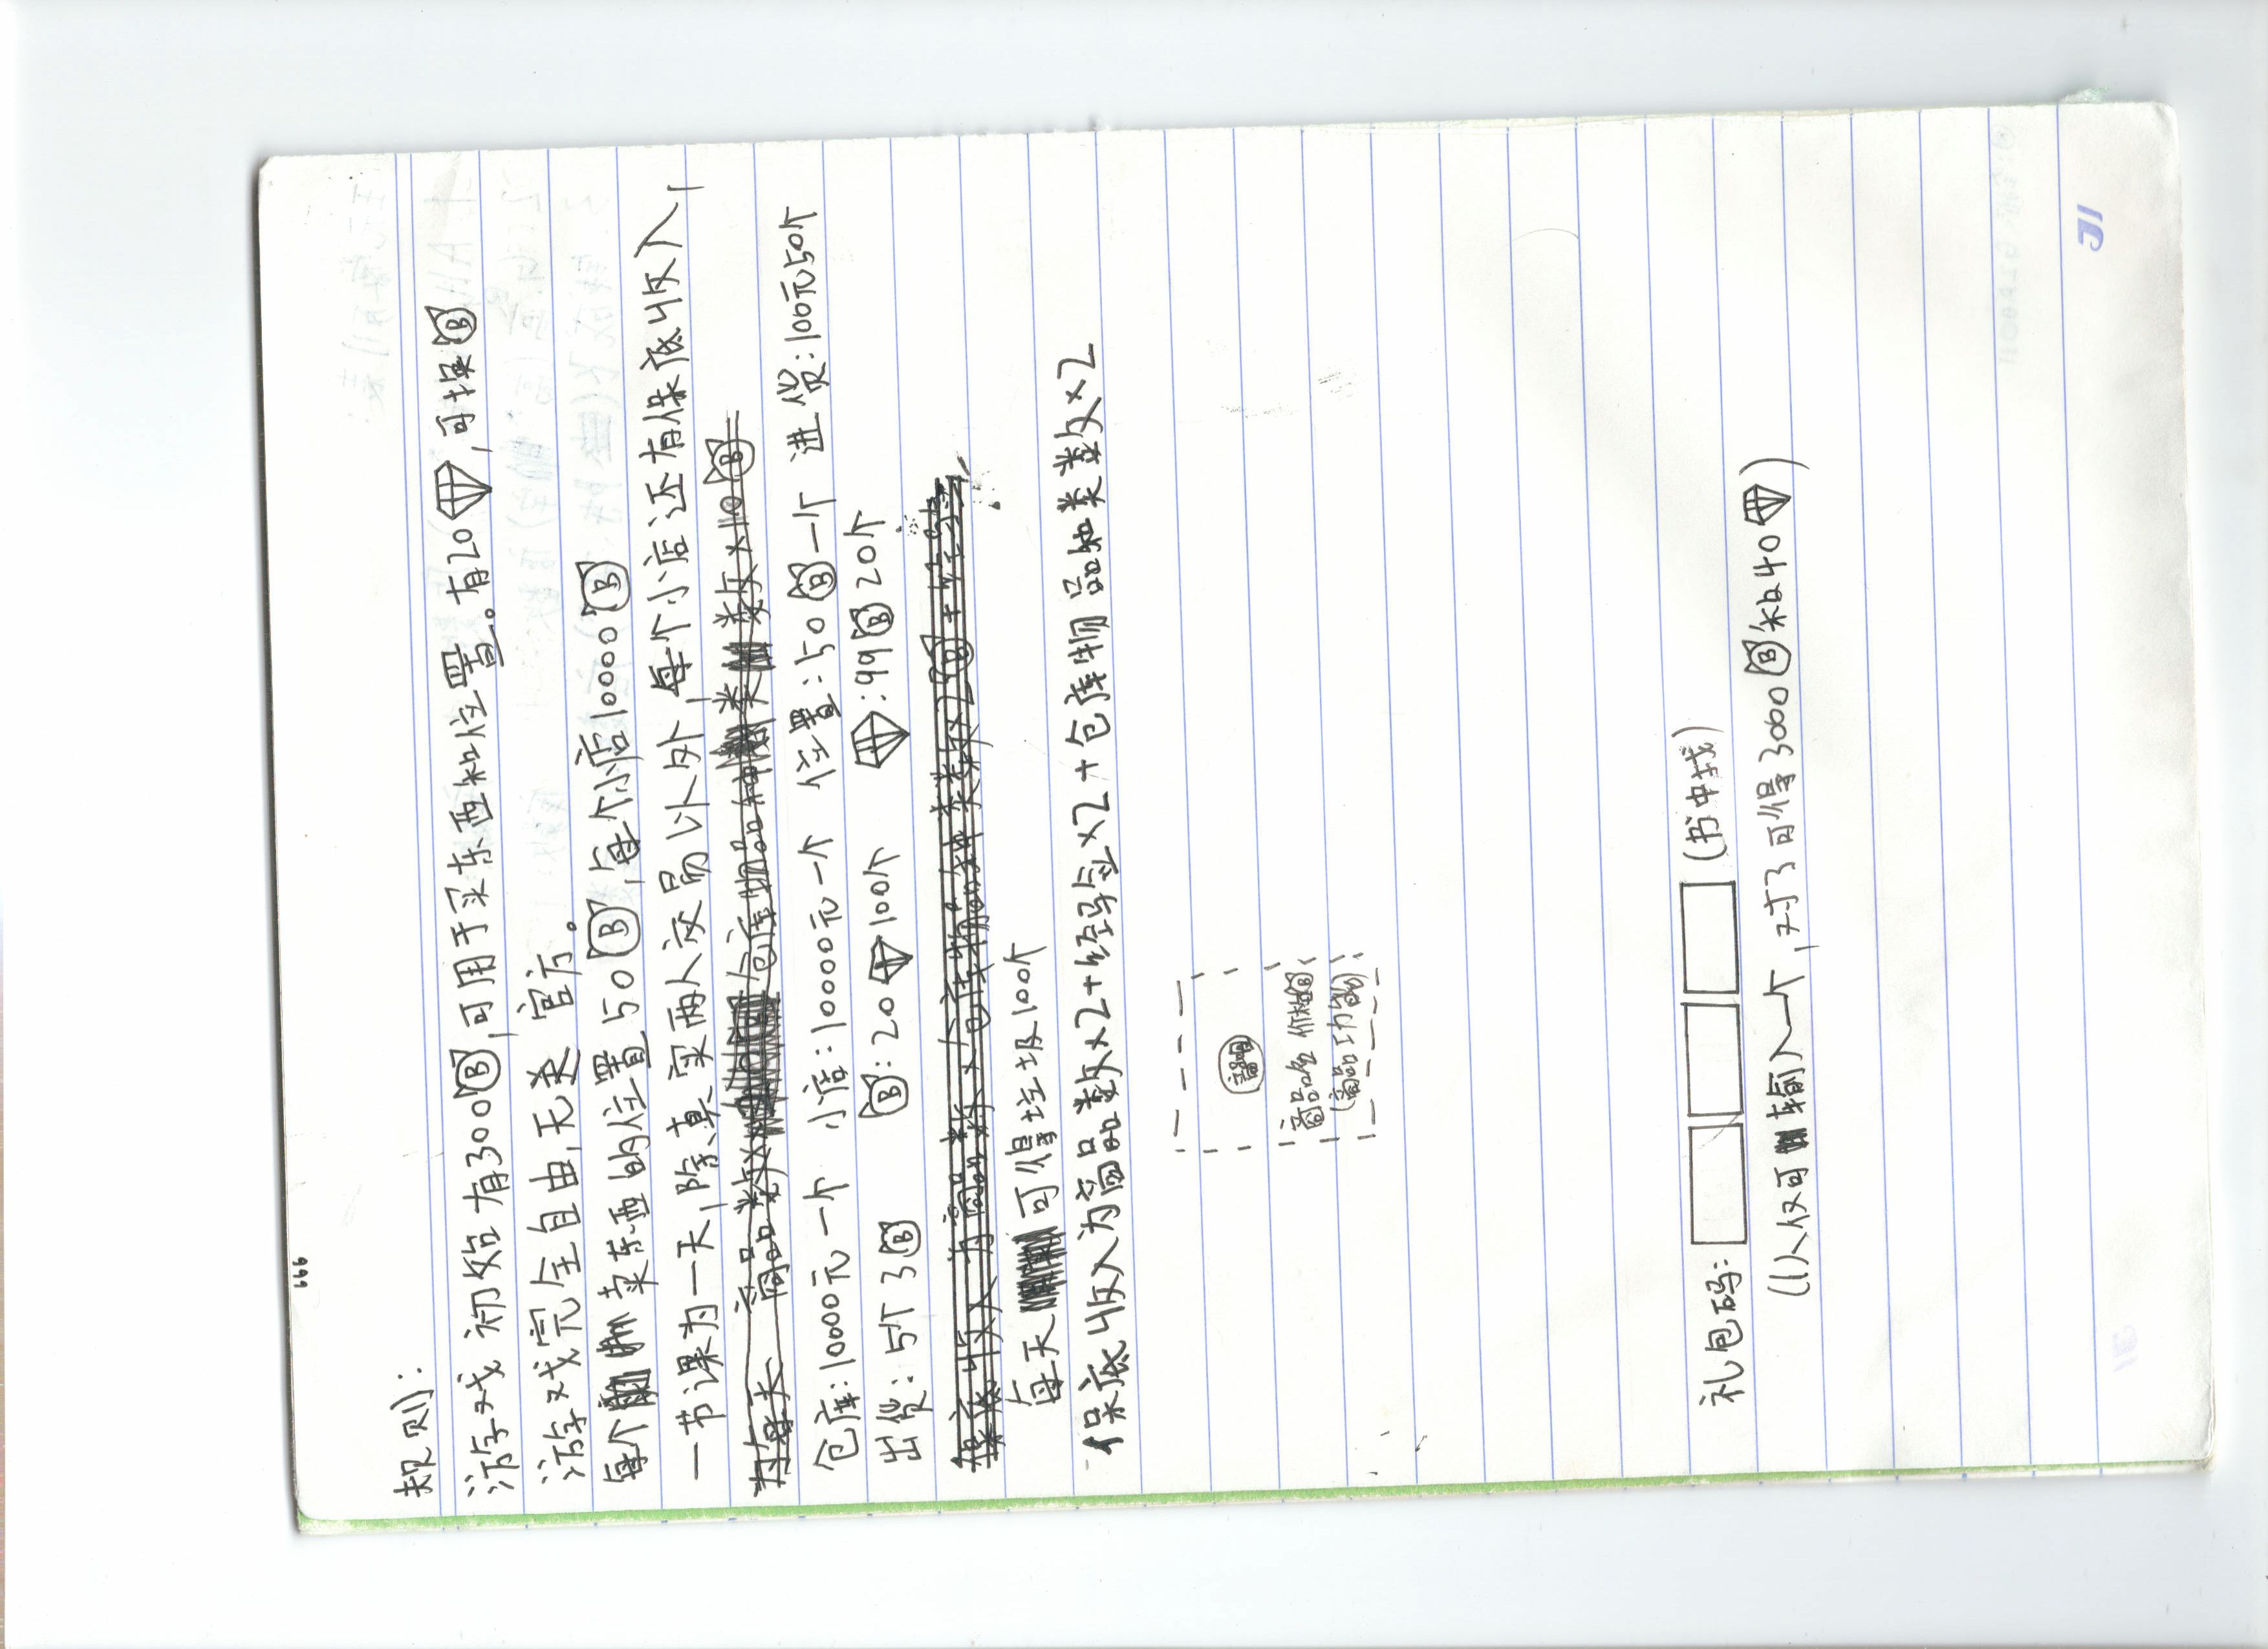 规则:
游戏初始有300Ⓑ,可用于买东西和位置。有20💎,可换Ⓑ
游戏完全自由,无关官方。
每个卖东西的位置50Ⓑ,每个小店10000Ⓑ
一节课为一天,除真实两人交易以外,每个小店还有保底收入,
仓库:10000元一个 小店:10000元一个 位置:50Ⓑ一个 进货:100元50个
出货:5个3Ⓑ Ⓑ:20💎100个 💎:99Ⓑ20个
每天可得垃圾100个
保底收入为商品数×2+经验×2+仓库物品种类数×2
商品名 价格Ⓑ
(商品功能)
礼包码: (书中找)
(1人仅可输入一个,对了可得3000Ⓑ和40💎)